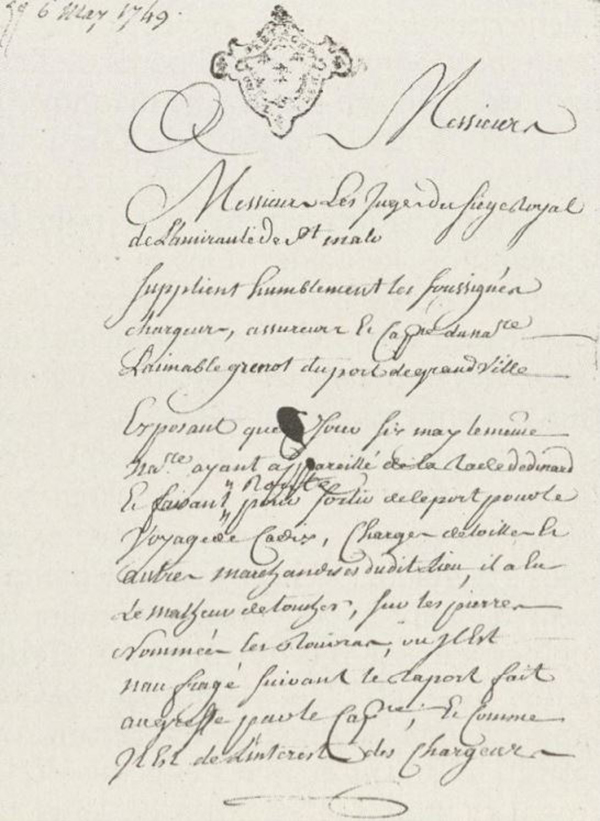 6 May 1749
Messieurs
Messieurs Les Juges du siege Royal
de Lamirauté de St malo
Supplient humblement les soussignés
chargeurs, assureurs Et Cap.ne du na.re
Laimable grenot du port de grandville
Exposant que jour six may le meme
na.re ayant appareillé de la rade de dinard
Et faisant pour sortir de le port pour le
Voyage de Cadix, Charger de toilles Et
autres marchandises dudit lieu, il a eu
Le malheur de toucher, sur les pierres
Nommées les, ou Il Est
naufragé suivant le raport fait
au greffe par le Cap.ne, Et Comme
Il Est de L'interest des Chargeurs